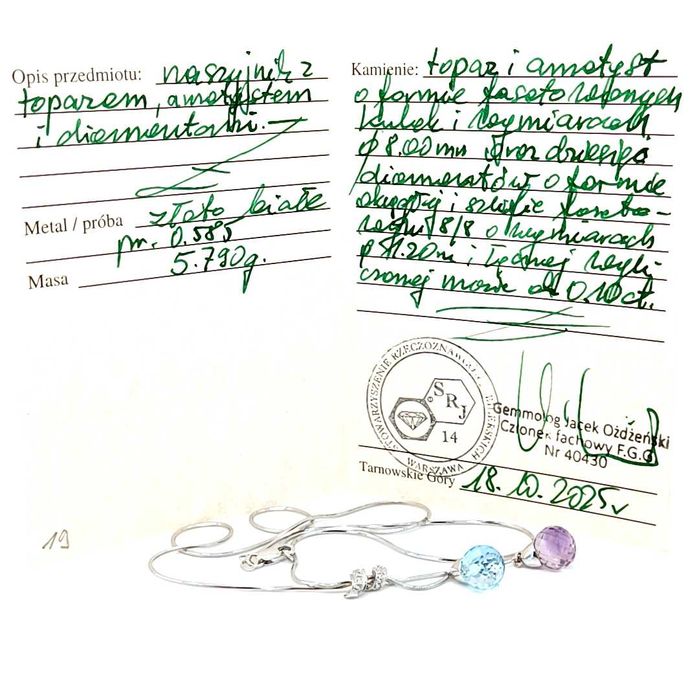 Opis przedmiotu: naszyjnik z
topazem, ametystem
i diamentami.—
Metal / próba złoto białe
pr. 0.585
Masa 5.790g.
19
Kamienie: topaz i ametyst
o formie fasetowanych
kulek i wymiarach
ø 8.00mm oraz dziesięć
diamentów o formie
okrągłej i szlifie faseto-
wym 8/8 o wymiarach
ø 1.20m i łącznej wyli-
czonej masie ok 0.10ct.
STOWARZYSZENIE RZECZOZNAWCÓW JUBILERSKICH
SRJ
14
WARSZAWA
Gemmolog Jacek Ożdżeński
Członek fachowy F.G.G
Nr 40430
Tarnowskie Góry 18.10.2025r